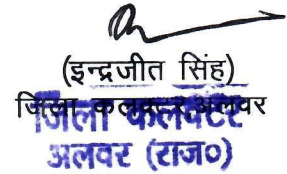 (इन्द्रजीत सिंह)
जिला कलक्टर अलवर
जिला कलक्टर
अलवर (राज०)